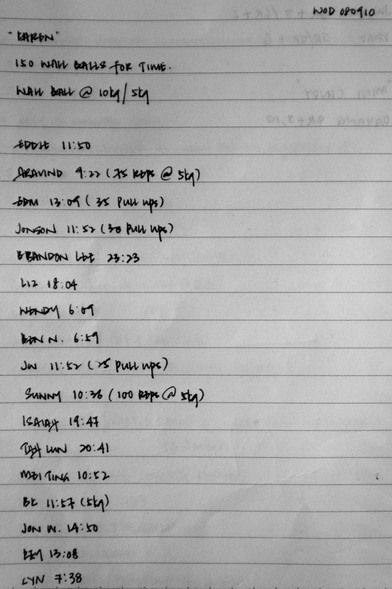 WOD 080910
"KAREN"
150 WALL BALLS FOR TIME.
WALL BALL @ 10kg/5kg
EDDIE 11:50
ARAVIND 9:22 (75 REPS @ 5kg)
EDM 13:09 (35 PULL UPS)
JONSON 11:52 (30 PULL UPS)
BRANDON LEE 23:23
LIZ 18:04
WENDY 6:09
BEN N. 6:59
JW 11:52 (25 PULL UPS)
SUNNY 10:36 (100 REPS @ 5kg)
ISAIAH 19:47
LUN 20:41
MEI TING 10:52
11:57 (5kg)
JON W. 14:50
13:08
LYN 7:38